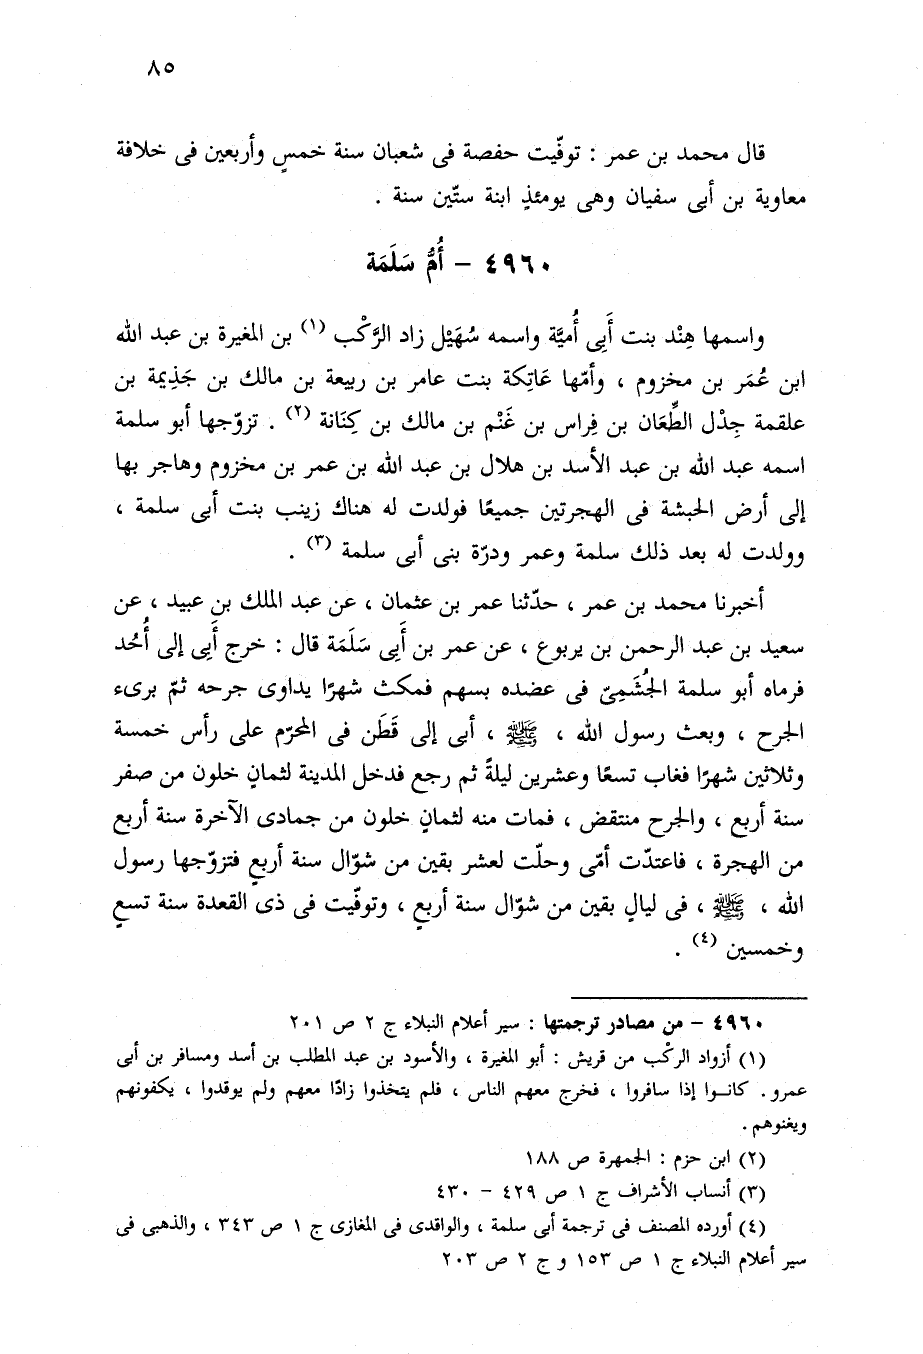 ٨٥
قال محمد بن عمر : توفّيت حفصة فى شعبان سنة خمسٍ وأربعين فى خلافة
معاوية بن أبى سفيان وهى يومئذٍ ابنة ستّين سنة .
٤٩٦٠ – أُمُّ سَلَمَة
واسمها هِنْد بنت أَبِى أُميَّة واسمه سُهَيْل زاد الرَّكْب (١) بن المغيرة بن عبد الله
ابن عُمَر بن مخزوم ، وأمّها عَاتِكة بنت عامر بن ربيعة بن مالك بن جَذِيمة بن
علقمة جِذْل الطِّعَان بن فِراس بن غَنْم بن مالك بن كِنَانة (٢) . تزوّجها أبو سلمة
اسمه عبد الله بن عبد الأسد بن هلال بن عبد الله بن عمر بن مخزوم وهاجر بها
إلى أرض الحبشة فى الهجرتين جميعًا فولدت له هناك زينب بنت أبى سلمة ،
وولدت له بعد ذلك سلمة وعمر ودرّة بنى أبى سلمة (٣) .
أخبرنا محمد بن عمر ، حدّثنا عمر بن عثمان ، عن عبد الملك بن عبيد ، عن
سعيد بن عبد الرحمن بن يربوع ، عن عمر بن أَبِى سَلَمَة قال : خرج أَبِى إلى أُحُد
فرماه أبو سلمة الجُشَمِىّ فى عضده بسهم فمكث شهرًا يداوى جرحه ثمّ برىء
الجرح ، وبعث رسول الله ، ﷺ ، أبى إلى قَطَن فى المحرّم على رأس خمسة
وثلاثين شهرًا فغاب تسعًا وعشرين ليلةً ثم رجع فدخل المدينة لثمانٍ خلون من صفر
سنة أربع ، والجرح منتقض ، فمات منه لثمانٍ خلون من جمادى الآخرة سنة أربع
من الهجرة ، فاعتدّت أمّى وحلّت لعشر بقين من شوّال سنة أربعٍ فتزوّجها رسول
الله ، ﷺ ، فى ليالٍ بقين من شوّال سنة أربعٍ ، وتوفّيت فى ذى القعدة سنة تسعٍ
وخمسين (٤) .
٤٩٦٠ – من مصادر ترجمتها : سير أعلام النبلاء ج ٢ ص ٢٠١
(١) أزواد الركْب من قريش : أبو المغيرة ، والأسود بن عبد المطلب بن أسد ومسافر بن أبى
عمرو. كانـوا إذا سافروا ، فخرج معهم الناس ، فلم يتخذوا زادًا معهم ولم يوقدوا ، يكفونهم
ويغنوهم .
(٢) ابن حزم : الجمهرة ص ١٨٨
(٣) أنساب الأشراف ج ١ ص ٤٢٩ – ٤٣٠
(٤) أورده المصنف فى ترجمة أبى سلمة ، والواقدى فى المغازى ج ١ ص ٣٤٣ ، والذهبى فى
سير أعلام النبلاء ج ١ ص ١٥٣ و ج ٢ ص ٢٠٣